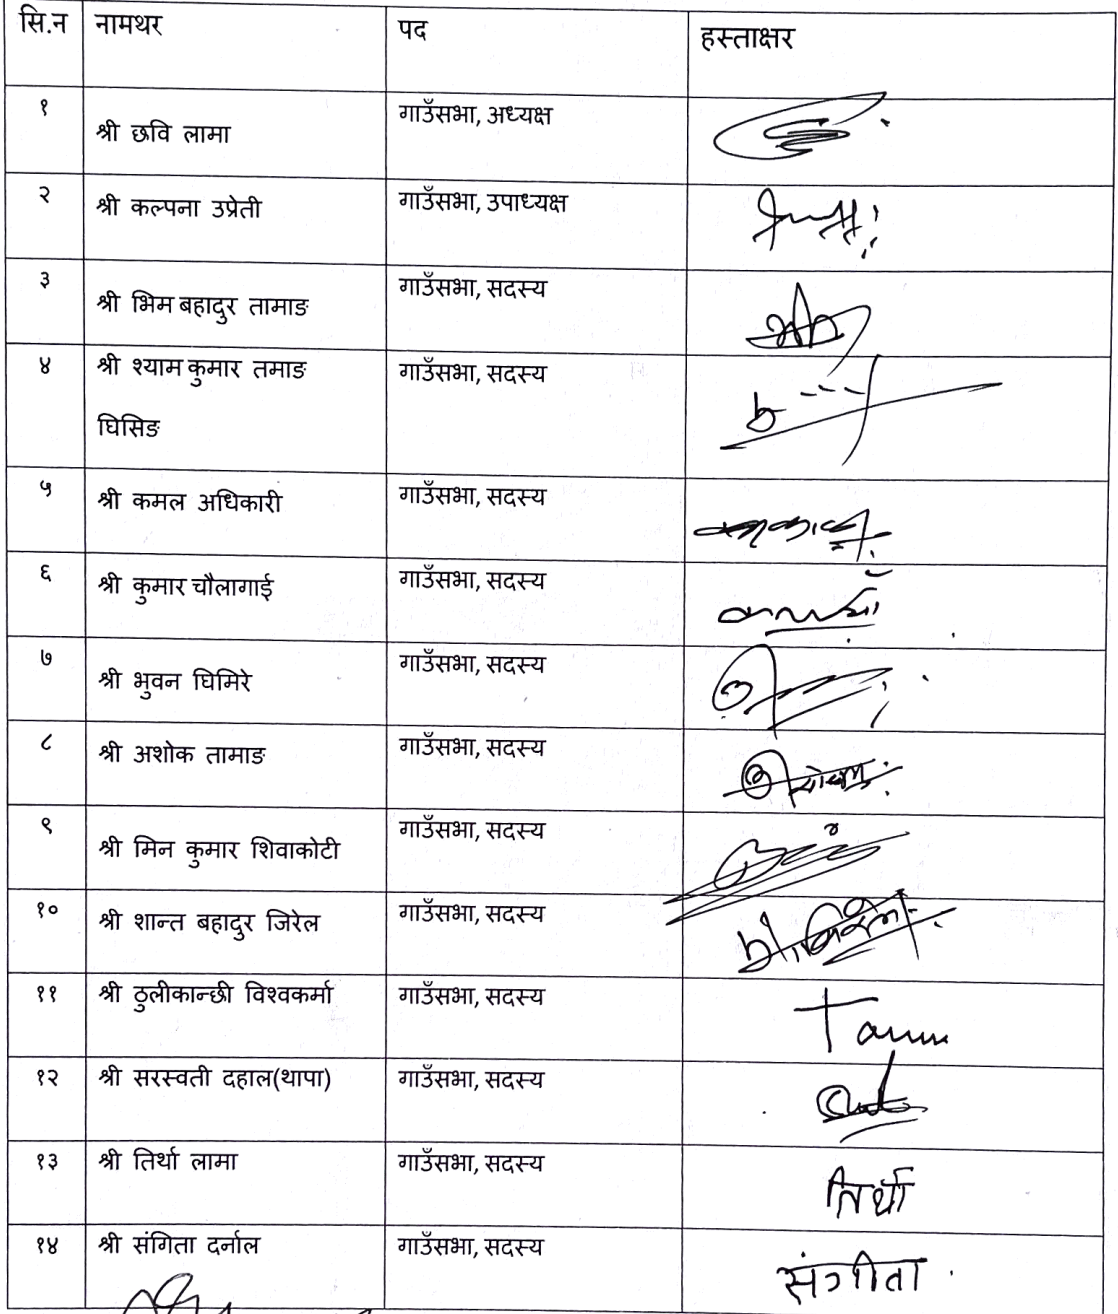 सि.न नामथर पद हस्ताक्षर
१ श्री छवि लामा गाउँसभा, अध्यक्ष
२ श्री कल्पना उप्रेती गाउँसभा, उपाध्यक्ष
३ श्री भिम बहादुर तामाङ गाउँसभा, सदस्य
४ श्री श्याम कुमार तमाङ गाउँसभा, सदस्य
घिसिङ
५ श्री कमल अधिकारी गाउँसभा, सदस्य
६ श्री कुमार चौलागाई गाउँसभा, सदस्य
७ श्री भुवन घिमिरे गाउँसभा, सदस्य
८ श्री अशोक तामाङ गाउँसभा, सदस्य
९ श्री मिन कुमार शिवाकोटी गाउँसभा, सदस्य
१० श्री शान्त बहादुर जिरेल गाउँसभा, सदस्य
११ श्री ठुलीकान्छी विश्वकर्मा गाउँसभा, सदस्य
१२ श्री सरस्वती दहाल(थापा) गाउँसभा, सदस्य
१३ श्री तिर्था लामा गाउँसभा, सदस्य तिर्था
१४ श्री संगिता दर्नाल गाउँसभा, सदस्य संगीता